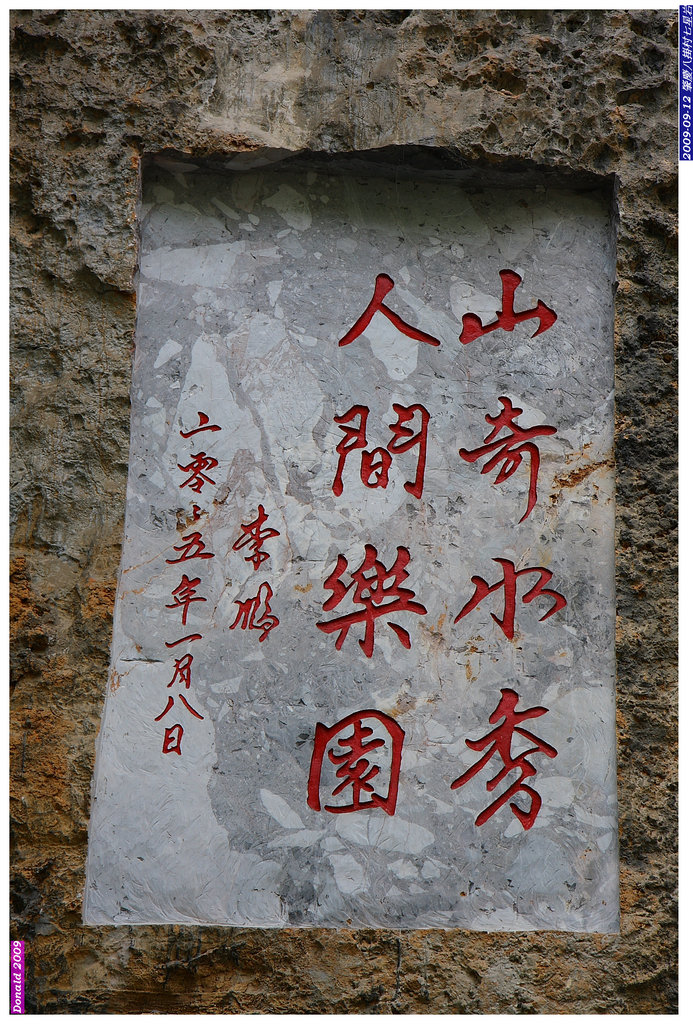 山奇水秀
人間樂園
李鵬
二零零五年一月八日
2009-09-12 肇慶八掛村七星岩
Donald 2009